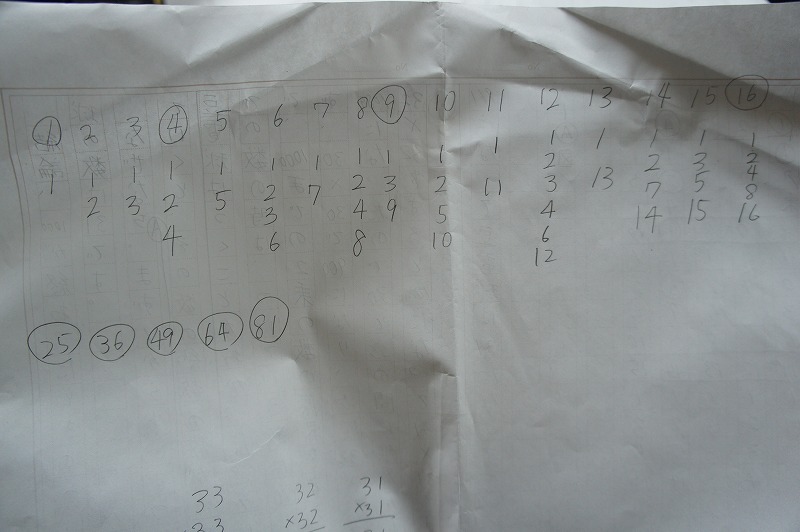 1 2 3 4 5 6 7 8 9 10 11 12 13 14 15 16
1 1 1 1 1 1 1 1 1 1 1 1 1 1 1 1
2 3 2 5 2 7 2 3 2 11 2 13 2 3 2
4 3 4 9 5 3 7 5 4
6 8 10 4 14 15 8
6 16
12
25 36 49 64 81
33 32 31
×32 ×31